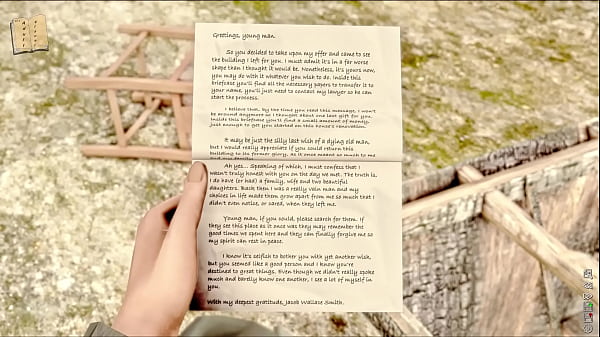 Greetings, young man.
So you decided to take upon my offer and came to see
the building I left for you. I must admit it's in a far worse
shape than I thought it would be. Nonetheless, it's yours now,
you may do with it whatever you wish to do. Inside this
briefcase you'll find all the necessary papers to transfer it to
your name, you'll just need to contact my lawyer so he can
start the process.
I believe that, by the time you read this message, I won't
be around anymore so I thought about one last gift for you.
Inside this briefcase you'll find a small amount of money,
just enough to get you started on this house's renovation.
It may be just the silly last wish of a dying old man,
but I would really appreciate if you could return this
building to its former glory, as it once meant so much to me
and my family.
Ah yes... Speaking of which, I must confess that I
wasn't truly honest with you on the day we met. The truth is,
I do have (or had) a family, wife and two beautiful
daughters. Back then I was a really vain man and my
choices in life made them apart from me so much that I
didn't even notice, or cared, when they left me.
Young man, if you could, please search for them. If
they see this place as it once was they may remember the
good times we spent here and they can finally forgive me so
my spirit can rest in peace.
I know it's selfish to bother you with yet another wish,
but you seemed like a good person and I know you're
destined to great things. Even though we didn't really spoke
much and barelly know one another, I see a lot of myself in
you.
With my deepest gratitude, Jacob Wallace Smith.